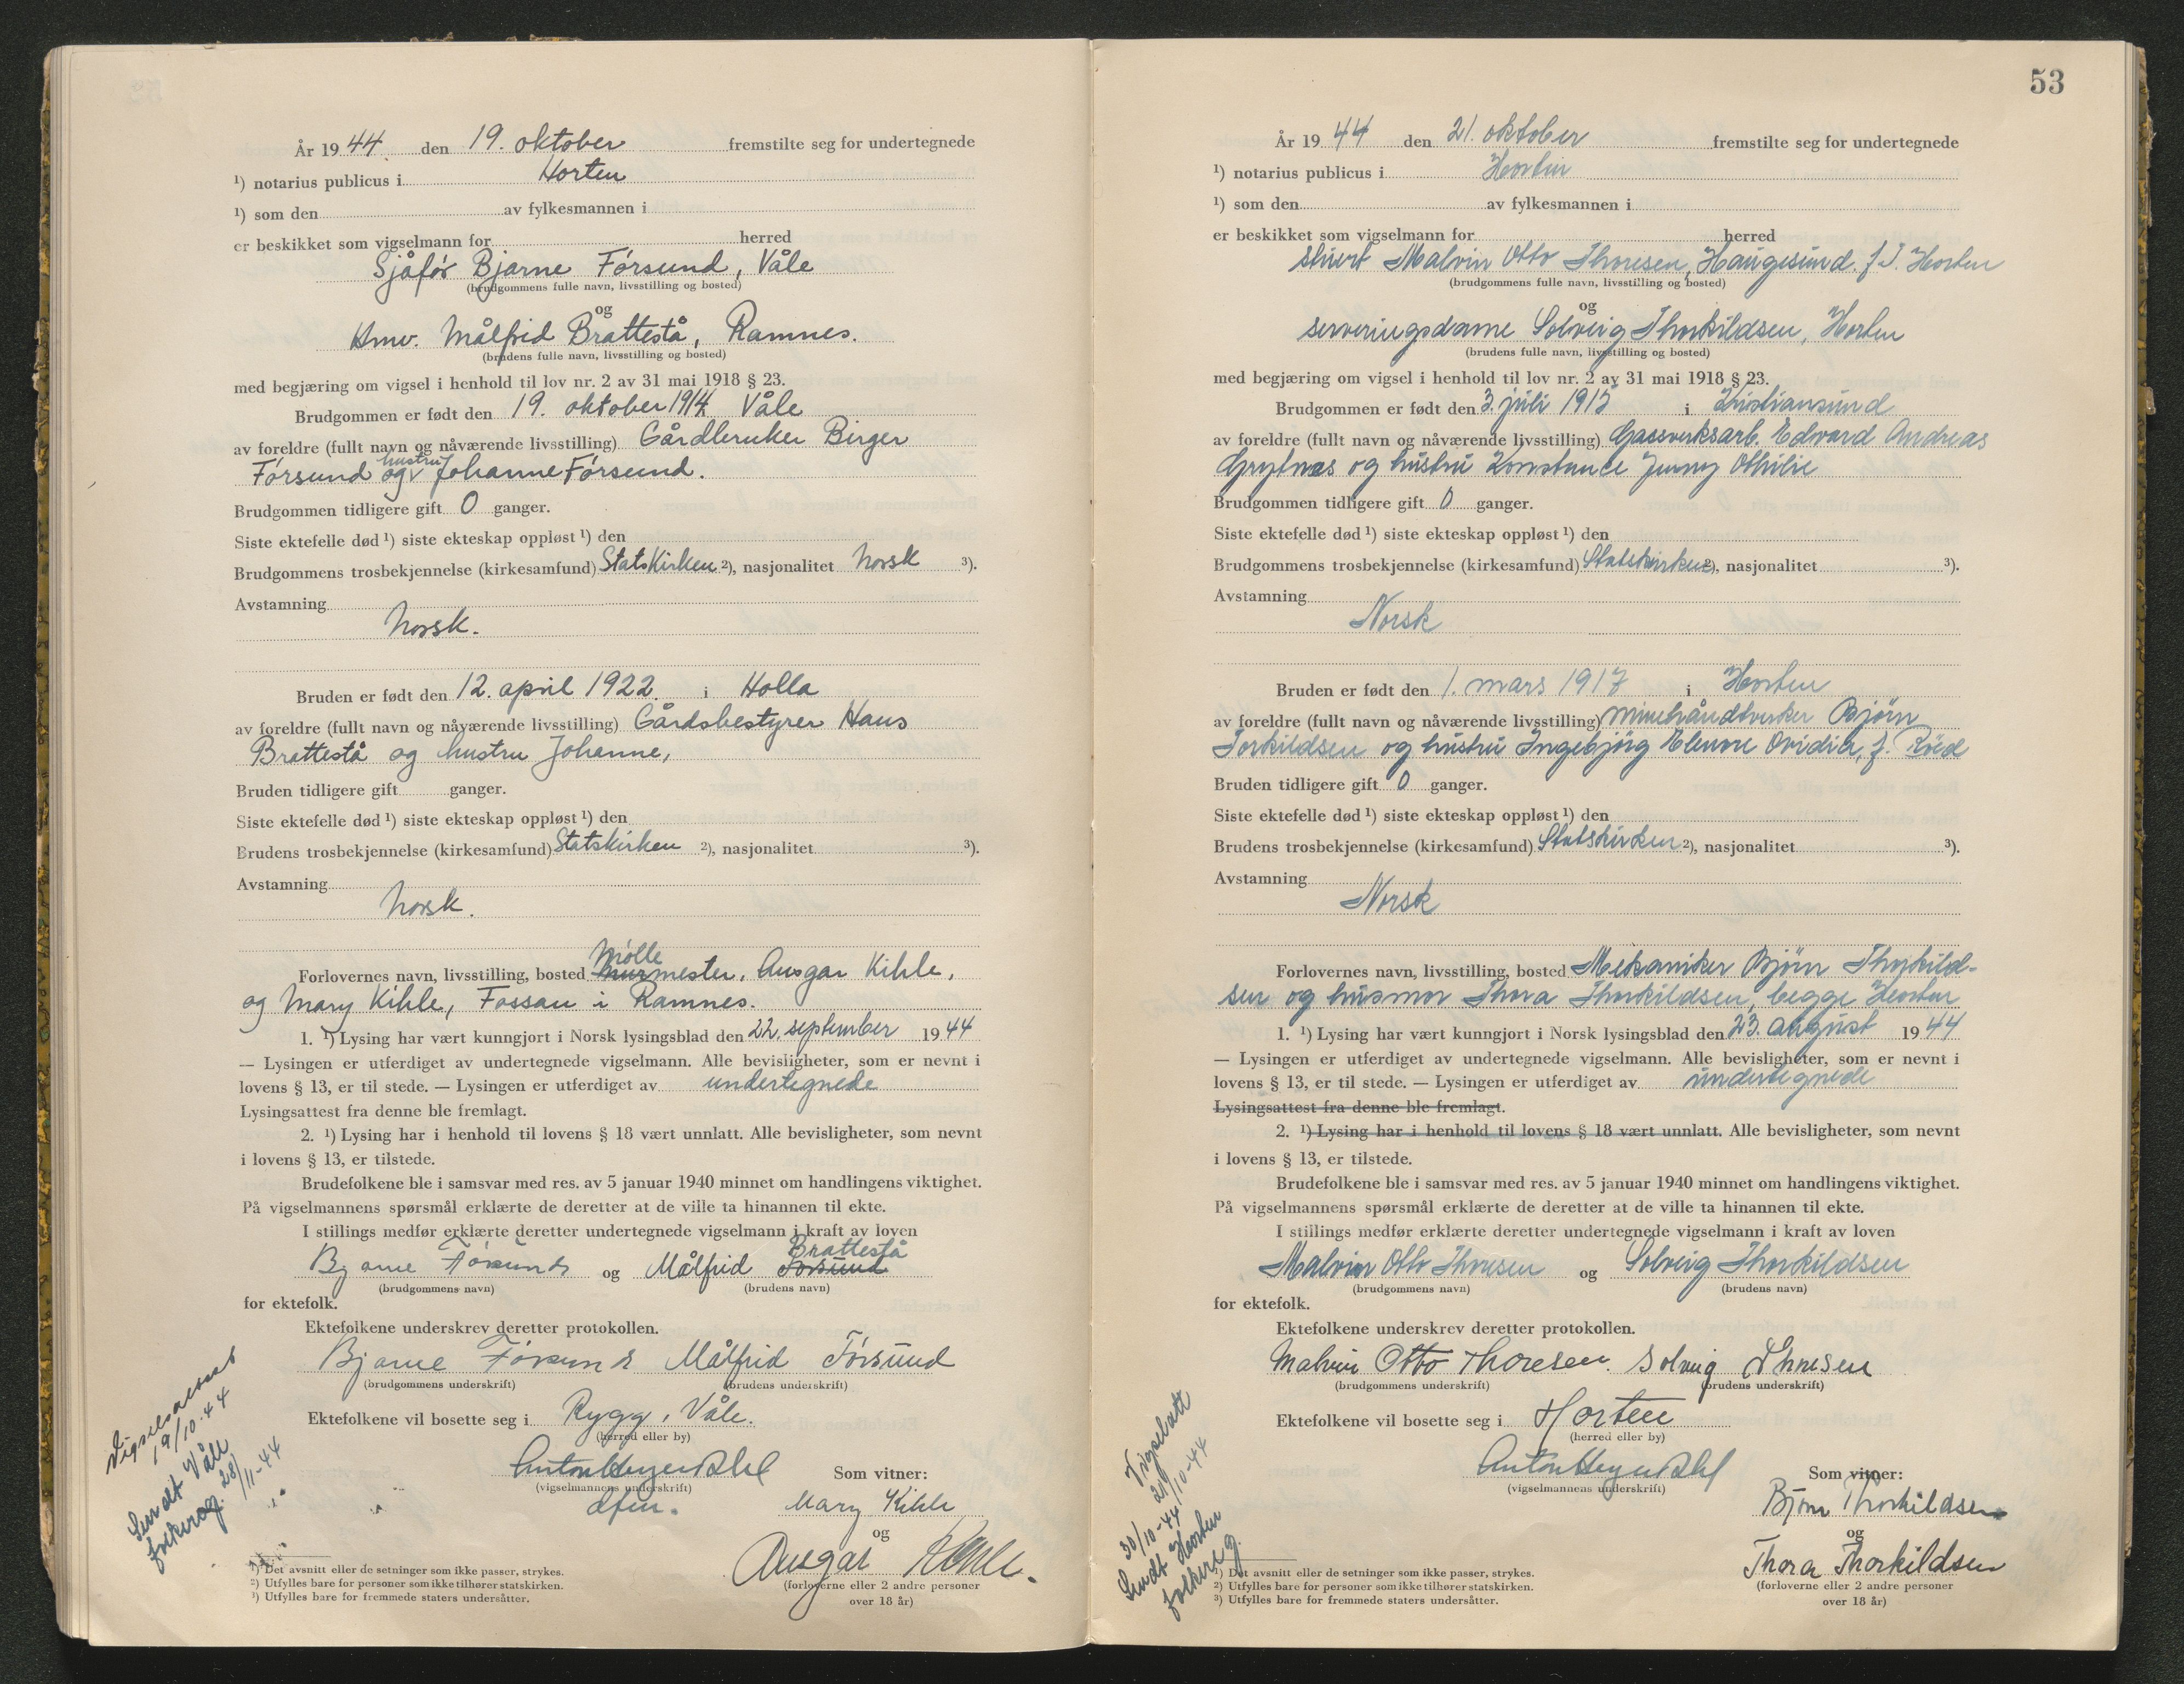 År 19 44 den 19. oktober fremstilte seg for undertegnede
¹) notarius publicus i Horten
¹) som den av fylkesmannen i
er beskikket som vigselmann for herred
Sjåfør Bjarne Førsund, Våle
(brudgommens fulle navn, livsstilling og bosted)
og
Hmv. Målfrid Brattestå, Ramnes.
(brudens fulle navn, livsstilling og bosted)
med begjæring om vigsel i henhold til lov nr. 2 av 31 mai 1918 § 23.
Brudgommen er født den 19. oktober 1914 Våle
av foreldre (fullt navn og nåværende livsstilling) Gårdbruker Birger
Førsund og hustru Johanne Førsund.
Brudgommen tidligere gift 0 ganger.
Siste ektefelle død ¹) siste ekteskap oppløst ¹) den
Brudgommens trosbekjennelse (kirkesamfund) Statskirken ²), nasjonalitet Norsk ³).
Avstamning
Norsk.
Bruden er født den 12. april 1922 i Holla
av foreldre (fullt navn og nåværende livsstilling) Gårdsbestyrer Hans
Brattestå og hustru Johanne,
Bruden tidligere gift ganger.
Siste ektefelle død ¹) siste ekteskap oppløst ¹) den
Brudens trosbekjennelse (kirkesamfund) Statskirken ²), nasjonalitet ³).
Avstamning
Norsk.
Mølle
Forlovernes navn, livsstilling, bosted murmester, Ansgar Kihle,
og Mary Kihle, Fossan i Ramnes.
1. ¹) Lysing har vært kunngjort i Norsk lysingsblad den 22. september 19 44
— Lysingen er utferdiget av undertegnede vigselmann. Alle bevisligheter, som er nevnt i
lovens § 13, er til stede. — Lysingen er utferdiget av undertegnede
Lysingsattest fra denne ble fremlagt.
2. ¹) Lysing har i henhold til lovens § 18 vært unnlatt. Alle bevisligheter, som nevnt
i lovens § 13, er tilstede.
Brudefolkene ble i samsvar med res. av 5 januar 1940 minnet om handlingens viktighet.
På vigselmannens spørsmål erklærte de deretter at de ville ta hinannen til ekte.
I stillings medfør erklærte deretter undertegnede vigselmann i kraft av loven
Brattestå
Bjarne Førsund og Målfrid Førsund
(brudgommens navn) (brudens navn)
for ektefolk.
Ektefolkene underskrev deretter protokollen.
Bjarne Førsund Målfrid Førsund
(brudgommens underskrift) (brudens underskrift)
Ektefolkene vil bosette seg i Rygg, Våle.
(herred eller by)
Som vitner:
(vigselmannens underskrift)
dfm.
Mary Kihle
og
Ansgar Kihle.
(forloverne eller 2 andre personer
over 18 år)
Vigselsattest
19/10-44
Sendt Våle
folkereg. 28/11-44
¹) Det avsnitt eller de setninger som ikke passer, strykes.
²) Utfylles bare for personer som ikke tilhører statskirken.
³) Utfylles bare for fremmede staters undersåtter.
53
År 19 44 den 21. oktober fremstilte seg for undertegnede
¹) notarius publicus i Horten
¹) som den av fylkesmannen i
er beskikket som vigselmann for herred
stuert Malvin Otto Thoresen, Haugesund. f.T. Horten
(brudgommens fulle navn, livsstilling og bosted)
og
serveringsdame Solveig Thorkildsen, Horten
(brudens fulle navn, livsstilling og bosted)
med begjæring om vigsel i henhold til lov nr. 2 av 31 mai 1918 § 23.
Brudgommen er født den 3. juli 1915 i Kristiansund
av foreldre (fullt navn og nåværende livsstilling) Gassverksarb. Edvard Andreas
Grytnes og hustru Konstance Jenny Othilie
Brudgommen tidligere gift 0 ganger.
Siste ektefelle død ¹) siste ekteskap oppløst ¹) den
Brudgommens trosbekjennelse (kirkesamfund) Statskirken ²), nasjonalitet ³).
Avstamning
Norsk
Bruden er født den 1. mars 1917 i Horten
av foreldre (fullt navn og nåværende livsstilling) minehåndverker Bjørn
Torkildsen og hustru Ingebjørg Elenore Ovidia, f. Røed
Bruden tidligere gift 0 ganger.
Siste ektefelle død ¹) siste ekteskap oppløst ¹) den
Brudens trosbekjennelse (kirkesamfund) Statskirken ²), nasjonalitet ³).
Avstamning
Norsk
Forlovernes navn, livsstilling, bosted Mekaniker Bjørn Thorkild-
sen og husmor Thora Thorkildsen, begge Horten
1. ¹) Lysing har vært kunngjort i Norsk lysingsblad den 23. august 19 44
— Lysingen er utferdiget av undertegnede vigselmann. Alle bevisligheter, som er nevnt i
lovens § 13, er til stede. — Lysingen er utferdiget av undertegnede
Lysingsattest fra denne ble fremlagt.
2. ¹) Lysing har i henhold til lovens § 18 vært unnlatt. Alle bevisligheter, som nevnt
i lovens § 13, er tilstede.
Brudefolkene ble i samsvar med res. av 5 januar 1940 minnet om handlingens viktighet.
På vigselmannens spørsmål erklærte de deretter at de ville ta hinannen til ekte.
I stillings medfør erklærte deretter undertegnede vigselmann i kraft av loven
Malvin Otto Thoresen og Solveig Thorkildsen
(brudgommens navn) (brudens navn)
for ektefolk.
Ektefolkene underskrev deretter protokollen.
Malvin Otto Thoresen. Solveig Thoresen
(brudgommens underskrift) (brudens underskrift)
Ektefolkene vil bosette seg i Horten
(herred eller by)
Som vitner:
(vigselmannens underskrift)
Bjørn Thorkildsen
og
Thora Thorkildsen
(forloverne eller 2 andre personer
over 18 år)
Vigselsatt
21/10-44
30/10-44
Sendt Horten
folkereg.
¹) Det avsnitt eller de setninger som ikke passer, strykes.
²) Utfylles bare for personer som ikke tilhører statskirken.
³) Utfylles bare for fremmede staters undersåtter.